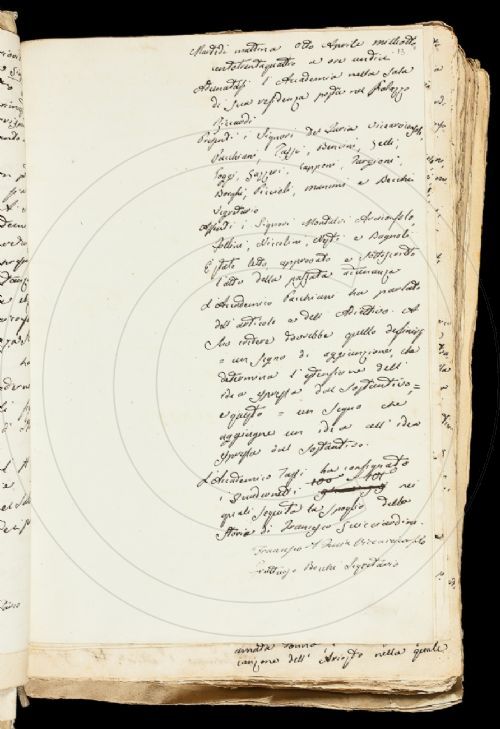 Martedì mattina otto Aprile milleotto
centotrentaquattro a ore undici
13
Adunatasi l'Accademia nella Sala
di sua residenza posta nel Palazzo
Riccardi
Presenti i Signori Del Furia ViceArciconsolo
Pacchiani, Tassi, Bencini, Zelli,
Poggi, Gazzeri, Capponi, Targioni,
Borghi, Piccioli, Mannini e Becchi
Segretario
Assenti i Signori Montalvi Arciconsolo
Follini, Niccolini, Nesti e Bagnoli
È stato letto, approvato e sottoscritto
l'atto della passata adunanza
L'Accademico Pacchiani ha parlato
dell'articolo e dell'Adiettivo. A
suo credere dovrebbe quello definirsi
= un segno di aggiunzione, che
determina l'estensione dell'
idea espressa dal sostantivo, =
e questo = un segno che
aggiugne un idea all'idea
espressa dal sostantivo.
L'Accademico Tassi ha consegnato
i Quadernetti nei
quali seguita lo spoglio della
Storia di Francesco Guicciardini.
Francesco Del Furia Vicearciconsolo
Fruttuoso Becchi Segretario
canzone dell'Ariosto nella quale